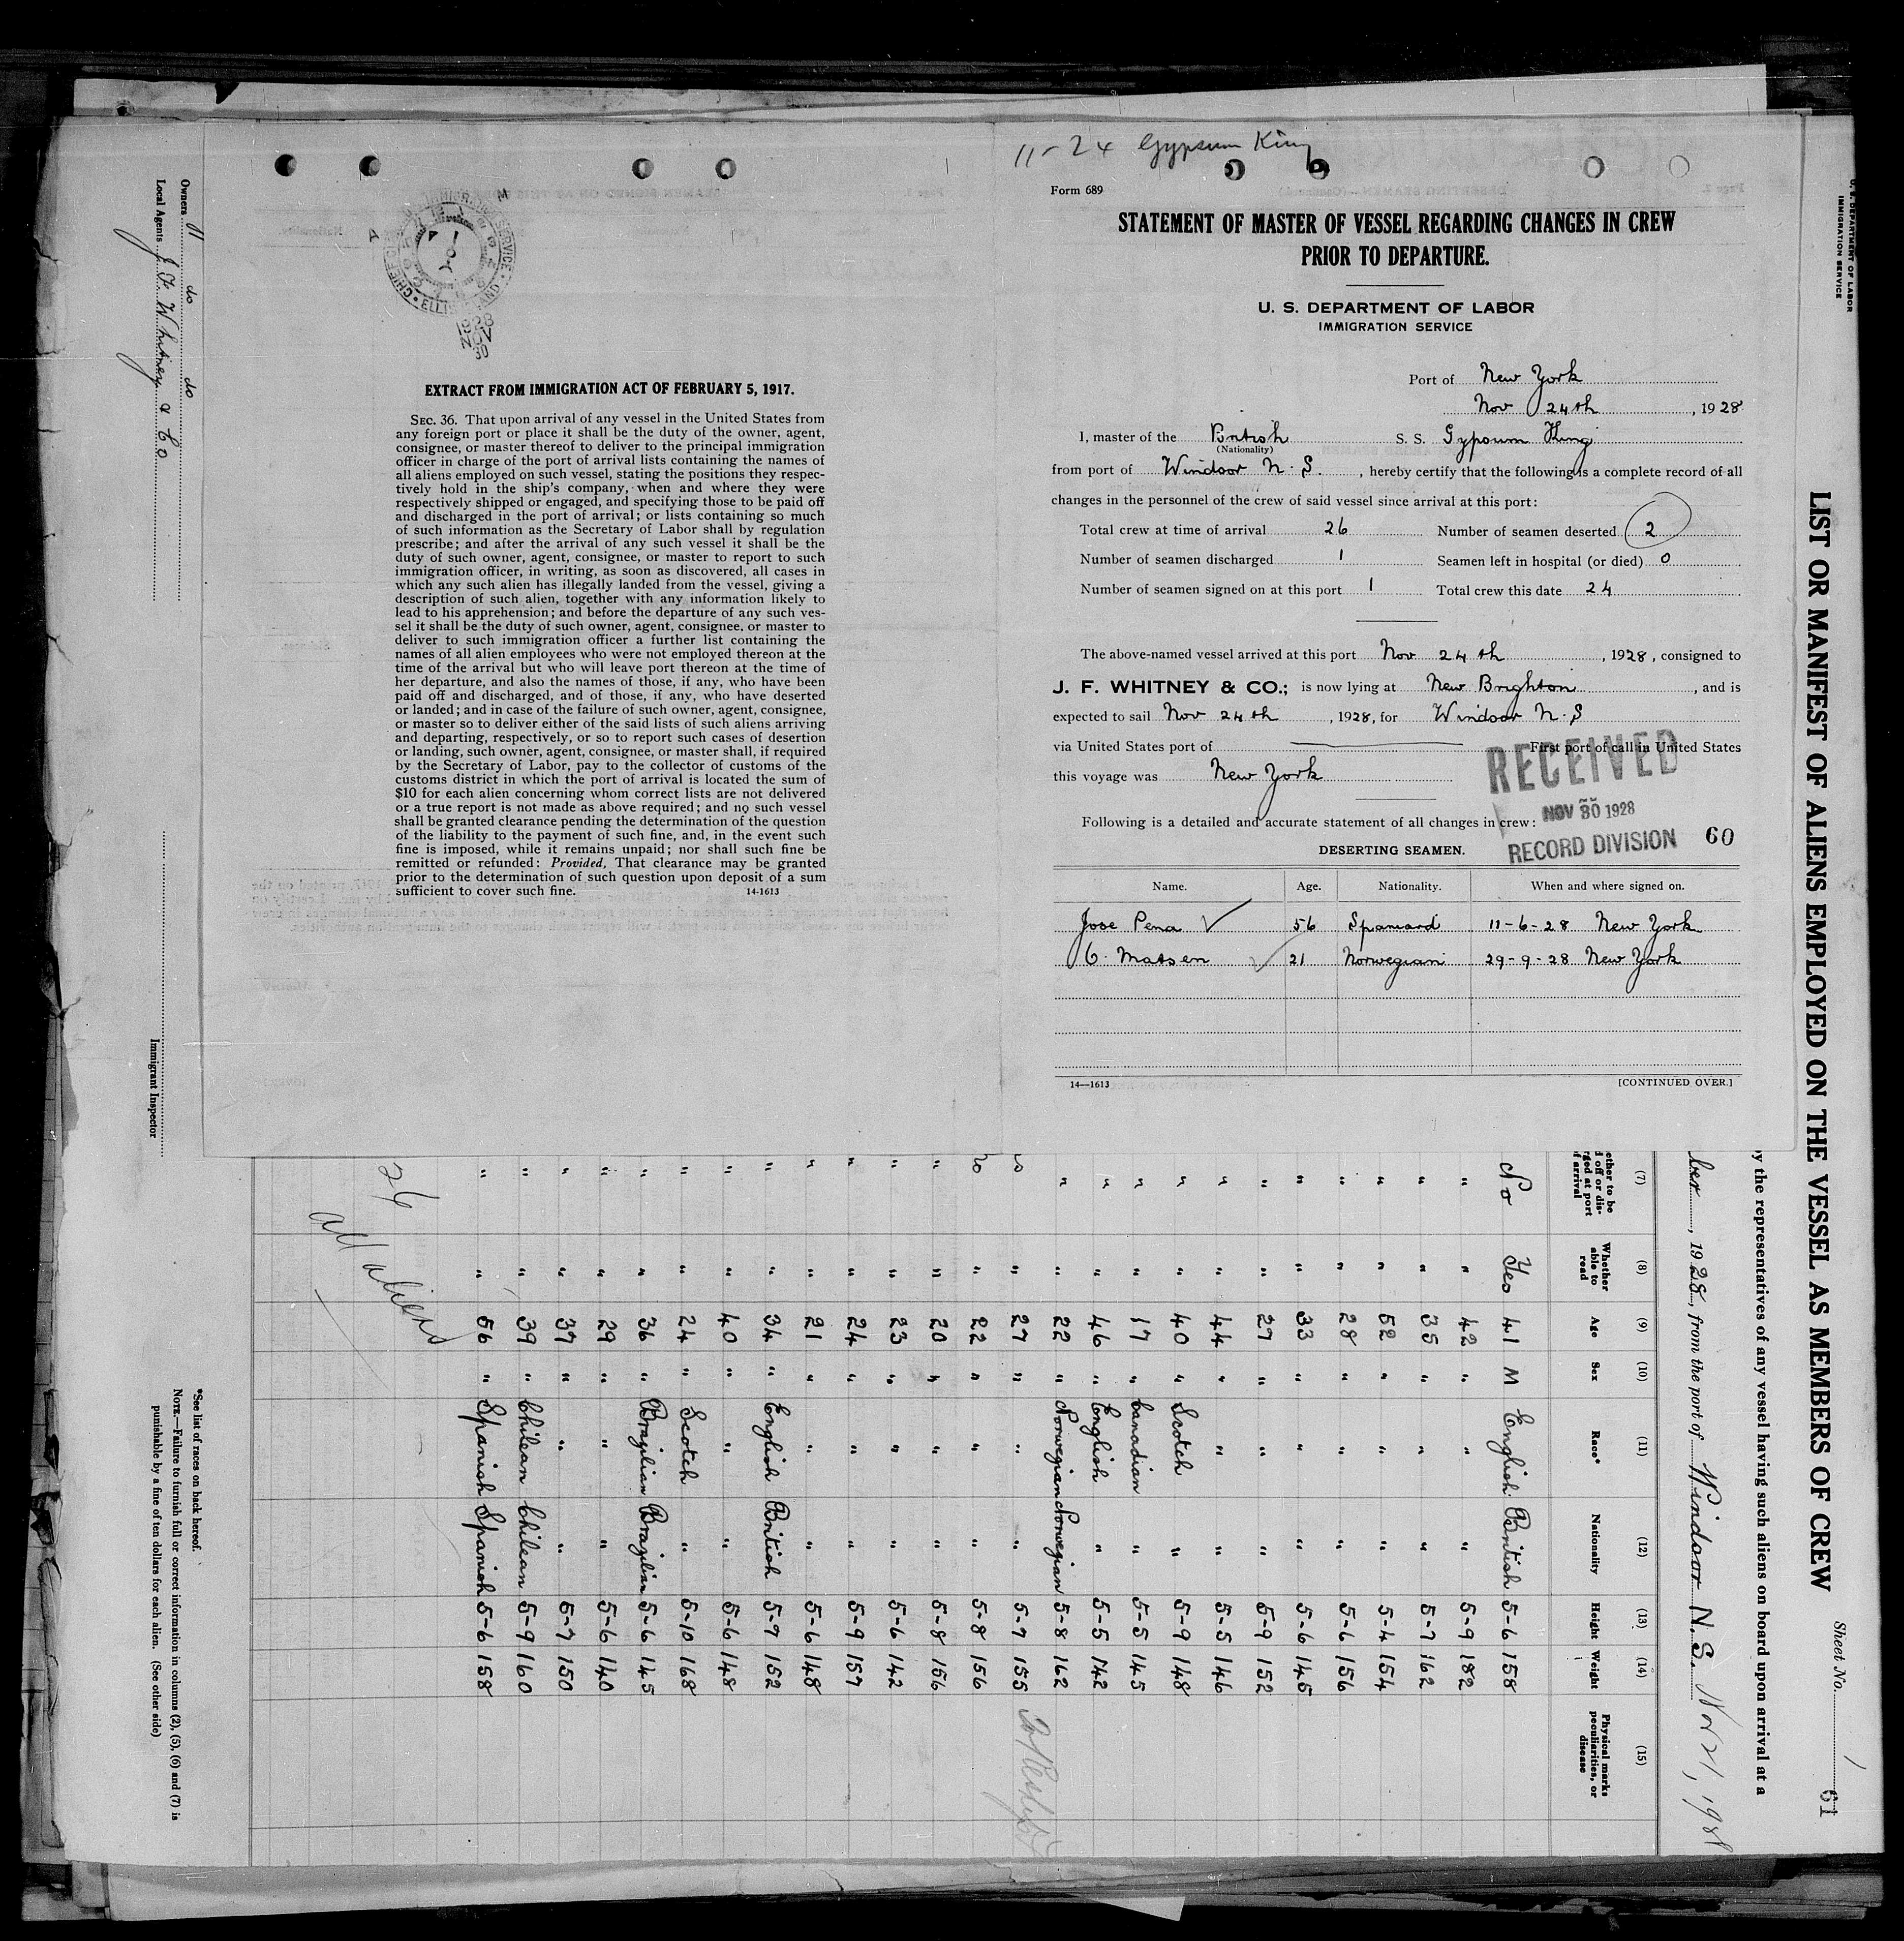 11-24 Gypsum King
Form 689
STATEMENT OF MASTER OF VESSEL REGARDING CHANGES IN CREW
PRIOR TO DEPARTURE.
U. S. DEPARTMENT OF LABOR
IMMIGRATION SERVICE
Port of New York
Nov 24th, 1928
I, master of the British S. S. Gypsum King
(Nationality)
from port of Windsor N. S., hereby certify that the following is a complete record of all
changes in the personnel of the crew of said vessel since arrival at this port:
Total crew at time of arrival 26 Number of seamen deserted 2
Number of seamen discharged 1 Seamen left in hospital (or died) 0
Number of seamen signed on at this port 1 Total crew this date 24
The above-named vessel arrived at this port Nov 24th, 1928, consigned to
J. F. WHITNEY & CO.; is now lying at New Brighton, and is
expected to sail Nov 24th, 1928, for Windsor N. S
via United States port of First port of call in United States
this voyage was New York
RECEIVED
NOV 30 1928
RECORD DIVISION
60
Following is a detailed and accurate statement of all changes in crew:
DESERTING SEAMEN.
Name. Age. Nationality. When and where signed on.
Jose Pena 56 Spaniard 11-6-28 New York
C. Matsen 21 Norwegian 29-9-28 New York
14—1613 [CONTINUED OVER.]
ELLIS
EXTRACT FROM IMMIGRATION ACT OF FEBRUARY 5, 1917.
SEC. 36. That upon arrival of any vessel in the United States from
any foreign port or place it shall be the duty of the owner, agent,
consignee, or master thereof to deliver to the principal immigration
officer in charge of the port of arrival lists containing the names of
all aliens employed on such vessel, stating the positions they respec-
tively hold in the ship's company, when and where they were
respectively shipped or engaged, and specifying those to be paid off
and discharged in the port of arrival; or lists containing so much
of such information as the Secretary of Labor shall by regulation
prescribe; and after the arrival of any such vessel it shall be the
duty of such owner, agent, consignee, or master to report to such
immigration officer, in writing, as soon as discovered, all cases in
which any such alien has illegally landed from the vessel, giving a
description of such alien, together with any information likely to
lead to his apprehension; and before the departure of any such ves-
sel it shall be the duty of such owner, agent, consignee, or master to
deliver to such immigration officer a further list containing the
names of all alien employees who were not employed thereon at the
time of the arrival but who will leave port thereon at the time of
her departure, and also the names of those, if any, who have been
paid off and discharged, and of those, if any, who have deserted
or landed; and in case of the failure of such owner, agent, consignee,
or master so to deliver either of the said lists of such aliens arriving
and departing, respectively, or so to report such cases of desertion
or landing, such owner, agent, consignee, or master shall, if required
by the Secretary of Labor, pay to the collector of customs of the
customs district in which the port of arrival is located the sum of
$10 for each alien concerning whom correct lists are not delivered
or a true report is not made as above required; and no such vessel
shall be granted clearance pending the determination of the question
of the liability to the payment of such fine, and, in the event such
fine is imposed, while it remains unpaid; nor shall such fine be
remitted or refunded: Provided, That clearance may be granted
prior to the determination of such question upon deposit of a sum
sufficient to cover such fine. 14-1613
U. S. DEPARTMENT OF LABOR
IMMIGRATION SERVICE
LIST OR MANIFEST OF ALIENS EMPLOYED ON THE VESSEL AS MEMBERS OF CREW
Sheet No. 1
61
by the representatives of any vessel having such aliens on board upon arrival at a
ber, 1928, from the port of Windsor N. S. Nov 21, 1928
(7) (8) (9) (10) (11) (12) (13) (14) (15)
Whether able to read Age Sex Race* Nationality Height Weight Physical marks, peculiarities, or disease
No Yes 41 M English British 5-6 158
" " 42 " " " 5-9 182
" " 35 " " " 5-7 162
" " 52 " " " 5-4 154
" " 28 " " " 5-6 156
" " 33 " " " 5-6 145
" " 27 " " " 5-9 152
" " 44 " " " 5-5 146
" " 40 " Scotch " 5-9 148
" " 17 " Canadian " 5-5 145
" " 46 " English " 5-5 142
" " 22 " Norwegian Norwegian 5-8 162
" 27 " " " 5-7 155
" 22 " " " 5-8 156
" " 20 " " " 5-8 156
" " 23 " " " 5-6 142
" " 24 " " " 5-9 157
" " 21 " " " 5-6 148
" " 34 " English British 5-7 152
" " 40 " " " 5-6 148
" " 24 " Scotch " 5-10 168
" " 36 " Brazilian Brazilian 5-6 145
" " 29 " " " 5-6 140
" " 37 " " " 5-7 150
" " 39 " Chilean Chilean 5-9 160
" " 56 " Spanish Spanish 5-6 158
26
all aliens
Owners " do do
Local Agents J F Whitney & Co
Immigrant Inspector
*See list of races on back hereof.
NOTE.—Failure to furnish full or correct information in columns (2), (5), (6) and (7) is
punishable by a fine of ten dollars for each alien. (See other side)